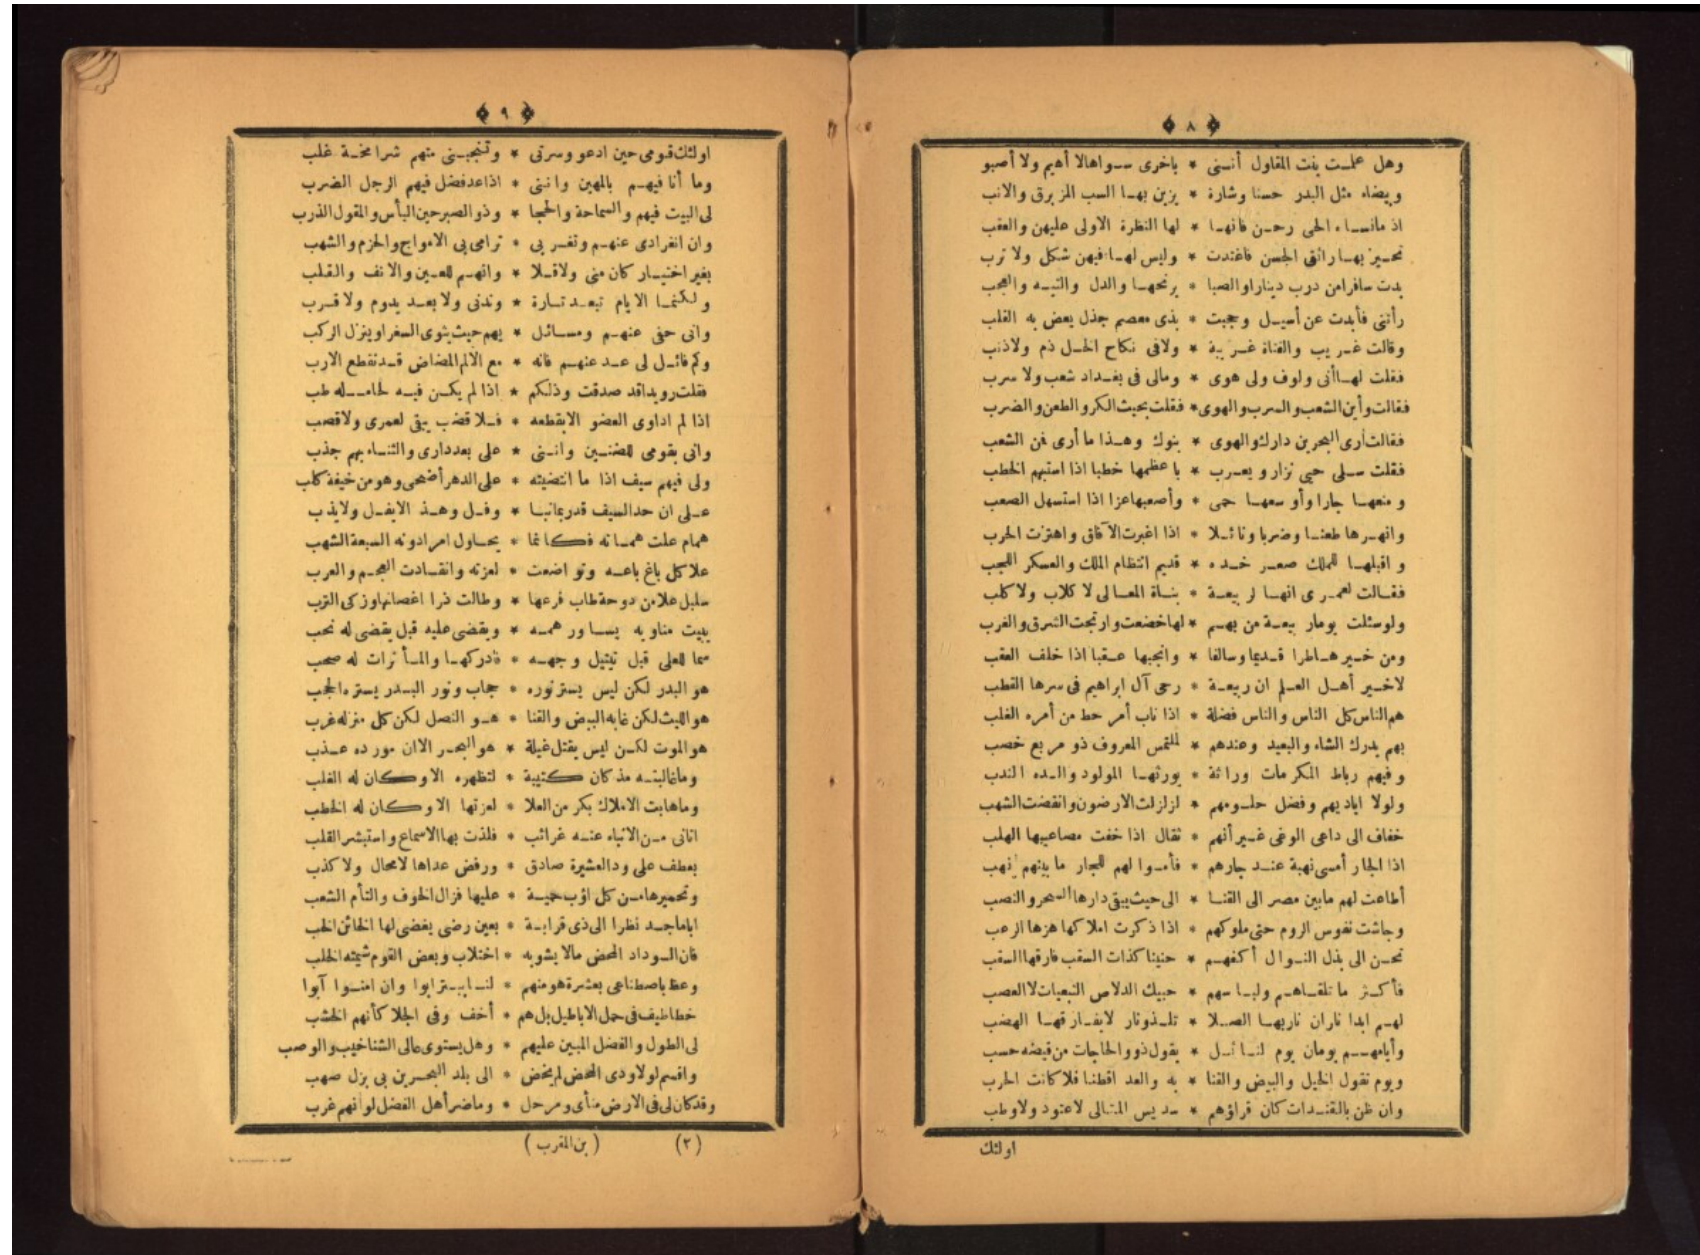 ﴿ ٨ ﴾
وهل علمت بنت المقاول أننى * باخرى سواها لا أهيم ولا أصبو
وبيضاء مثل البدر حسنا وشارة * يزين بها السب المزبرق والانب
اذ مانساء الحى رحن فانها * لها النظرة الاولى عليهن والعقب
تحير بها رائق الحسن فاغتدت * وليس لها فيهن شكل ولا ترب
بدت سافرا من درب دينار والصبا * يرنحها والدل والتيه والعجب
رأتنى فأبدت عن أسيل وحجبت * بذى معصم جذل يعض به القلب
وقالت غريب والفتاة غريبة * ولا فى نكاح الحل ذم ولاذنب
فقلت لها أنى ولوف ولى هوى * ومالى فى بغداد شعب ولا سرب
فقالت وأين الشعب والسرب والهوى * فقلت بحيث الكر والطعن والضرب
فقالت أرى البحرين دارك والهوى * بنوك وهذا ما أرى فمن الشعب
فقلت سلى حيى نزار ويعرب * باعظمها خطبا اذا استبهم الخطب
ومنعها جارا وأوسعها حمى * وأصعبها عزا اذا استسهل الصعب
وانهرها طعنا وضربا ونائلا * اذا اغبرت الآفاق واهتزت الحرب
واقبلها للملك صعر خده * قديم انتظام الملك والعسكر اللجب
فقالت لعمرى انها لربيعة * بناة المعالى لا كلاب ولا كلب
ولوسئلت يومار بيعة من بهم * لها خضعت وارتجت الشرق والغرب
ومن خير هاطرا قديما وسالفا * وانجبها عقبا اذا خلف العقب
لاخير أهل العلم ان ربيعة * رحى آل ابراهيم فى سرها القطب
هم الناس كل الناس والناس فضلة * اذا ناب أمر حط من أمره الغلب
بهم يدرك الشاء والبعيد وعندهم * لملتمس المعروف ذو مربع خصب
وفيهم رباط المكرمات وراثة * يورثها المولود والده الندب
ولولا اياديهم وفضل حلومهم * لزلزلت الارضون وانقضت الشهب
خفاف الى داعى الوغى غير أنهم * ثقال اذا خفت مصاعيبها الهلب
اذا الجار أمسى نهبة عند جارهم * فأموا لهم للجار ما بينهم نهب
أطاعت لهم مابين مصر الى القنا * الى حيث يبقى دارها السحر والنصب
وجاشت نفوس الروم حتى ملوكهم * اذا ذكرت املاكها هزها الرعب
تحن الى بذل النوال أكفهم * حنينا كذات السقب فارقها السقب
فأكثر ما تلقاهم ولباسهم * حبيك الدلاص التبعيات لا العصب
لهم ابدا ناران ناربها الصلا * تلذ ونار لايفارقها الهضب
وأيامهم يومان يوم لنائل * يقول ذوو الحاجات من فيضه حسب
ويوم تقول الخيل والبيض والقنا * به والعد اقطنا فلا كانت الحرب
وان ظن بالقندات كان قراؤهم * سديس المتالى لاعتود ولا وطب
اولئك
﴿ ٩ ﴾
اولئك قومى حين ادعو وسرتى * وتنجبنى منهم شرا مخة غلب
وما أنا فيهم بالمهين واننى * اذا عد فضل فيهم الرجل الضرب
لى البيت فيهم والسماحة والحجا * وذو الصبر حين البأس والمقول الذرب
وان انفرادى عنهم وتغربى * ترامى بى الامواج والحزم والشهب
بغير اختيار كان منى ولا قلا * وانهم للعين والانف والقلب
ولكنما الايام تبعد تارة * وتدنى ولا بعد يدوم ولا قرب
وانى حفى عنهم ومسائل * بهم حيث يثوى السفر او ينزل الركب
وكم قائل لى عد عنهم فانه * مع الالم المضاض قد تقطع الارب
فقلت رويدا قد صدقت وذلكم * اذا لم يكن فيه لحامله طب
اذا لم اداوى العضو الا بقطعه * فلا قضب يبقى لعمرى ولا قصب
وانى بقومى للضنين واننى * على بعد دارى والثناء بهم جذب
ولى فيهم سيف اذا ما انتضيته * على الدهر أضحى وهو من خيفة كلب
على ان حد السيف قد ربمانبا * وفل وهذ الايفل ولا يذب
همام علت هماته فكانما * يحاول امرادونه السبعة الشهب
علا كل باغ باعه وتواضعت * لعزته وانقادت العجم والعرب
سليل علا من دوحة طاب فرعها * وطالت ذرا اغصانها وزكى الترب
يبيت مناويه يساور همه * ويقضى عليه قبل يقضى له نحب
سما للعلى قبل تبتيل وجهه * فادركها والمأثرات له صحب
هو البدر لكن ليس يسترنوره * حجاب ونور البدر يستره الحجب
هو الليث لكن غابه البيض والقنا * هو النصل لكن كل منزله غرب
هو الموت لكن ليس يقتل غيلة * هو البحر الا ان مورده عذب
وماغالبته مذ كان كتيبة * لتظهره الا وكان له الغلب
وماهابت الاملاك بكر من العلا * لعزتها الا وكان له الخطب
اتانى من الانباء عنه غرائب * فلذت بها الاسماع واستبشر القلب
بعطف على ود العشيرة صادق * ورفض عداها لامحال ولا كذب
وتحميرها من كل اؤب حمية * عليها فزال الخوف والتأم الشعب
اباماجد نظرا الى ذى قرابة * بعين رضى يغضى لها الخائن الخب
فان الوداد المحض مالا يشوبه * اختلاب وبعض القوم شيمته الخلب
وعظ باصطناعى بعشرة هو منهم * لنا يبترابوا وان امنوا آبوا
خطاطيف فى حمل الاباطيل بل هم * أخف وفى الجلا كأنهم الخشب
لى الطول والفضل المبين عليهم * وهل يستوى عالى الشناخيب والوصب
واقسم لولا ودى المحض لم يخض * الى بلد البحرين بى بزل صهب
وقد كان لى فى الارض منأى ومرحل * وماضر أهل الفضل لو انهم غرب
(٢) (بن المقرب)